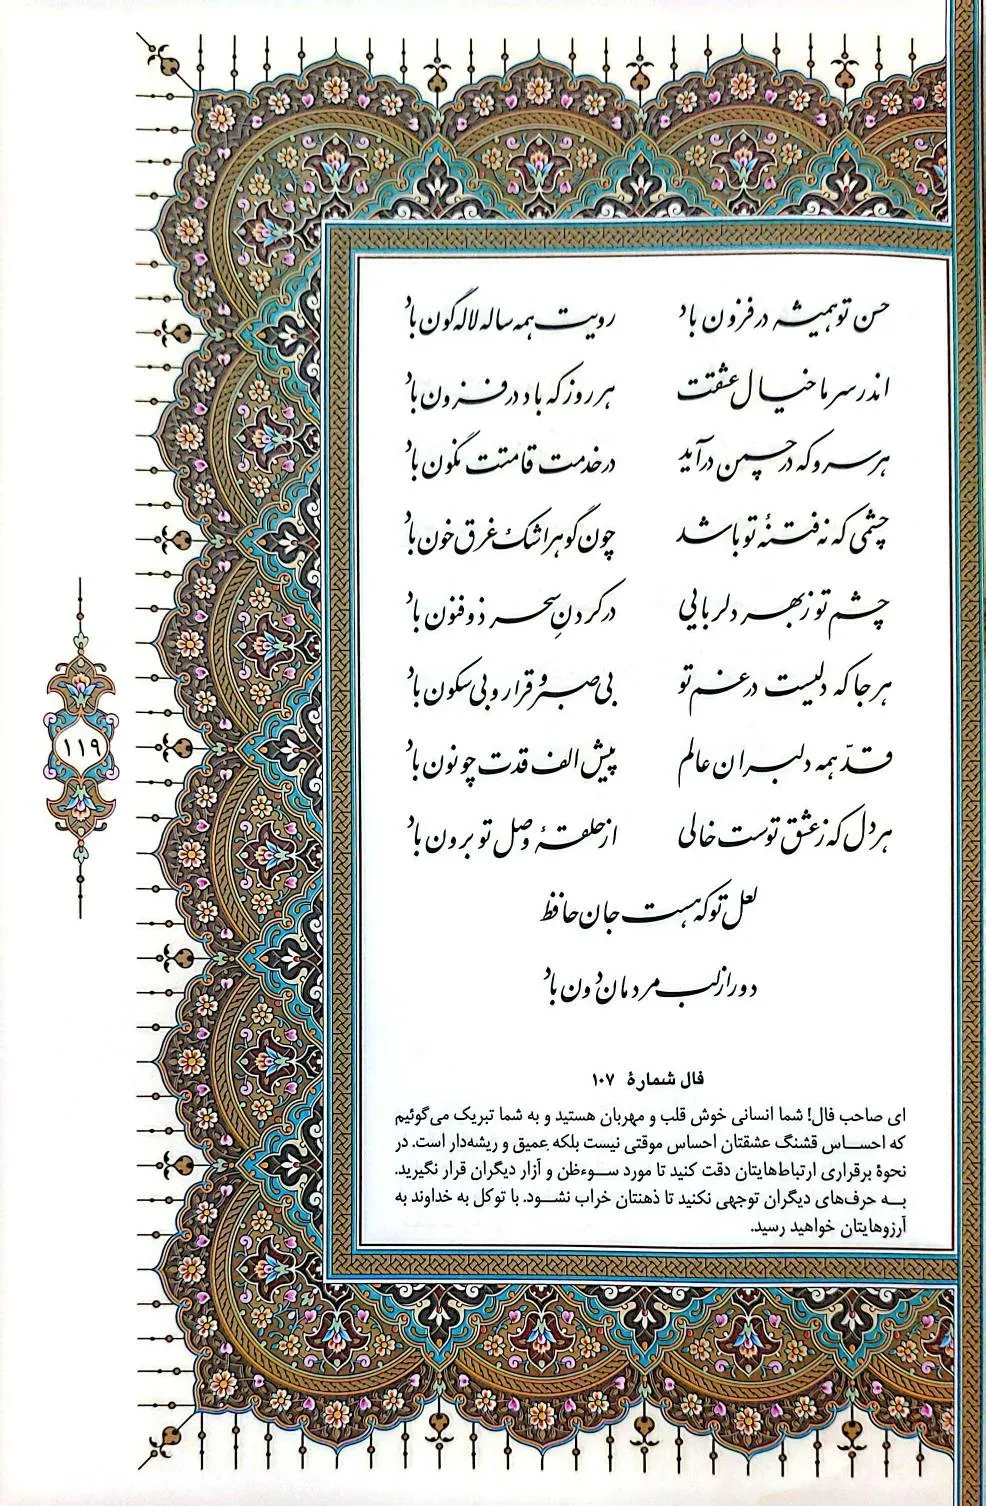 حسن تو همیشه در فزون باد رویت همه ساله لاله گون باد
اندر سر ما خیال عشقت هر روز که باد در فزون باد
هر سرو که در چمن درآید در خدمت قامتت نگون باد
چشمی که نه فتنهٔ تو باشد چون گوهر اشک غرق خون باد
چشم تو ز بهر دلربایی در کردنِ سحر ذوفنون باد
هر جا که دلیست در غم تو بی صبر و قرار و بی سکون باد
قدّ همه دلبران عالم پیش الف قدت چو نون باد
هر دل که ز عشق توست خالی از حلقهٔ وصل تو برون باد
لعل تو که هست جان حافظ
دور از لب مردمان دون باد
۱۱۹
فال شمارهٔ ۱۰۷
ای صاحب فال! شما انسانی خوش قلب و مهربان هستید و به شما تبریک می‌گوئیم
که احساس قشنگ عشقتان احساس موقتی نیست بلکه عمیق و ریشه‌دار است. در
نحوهٔ برقراری ارتباط‌هایتان دقت کنید تا مورد سوءظن و آزار دیگران قرار نگیرید.
به حرف‌های دیگران توجهی نکنید تا ذهنتان خراب نشود. با توکل به خداوند به
آرزوهایتان خواهید رسید.